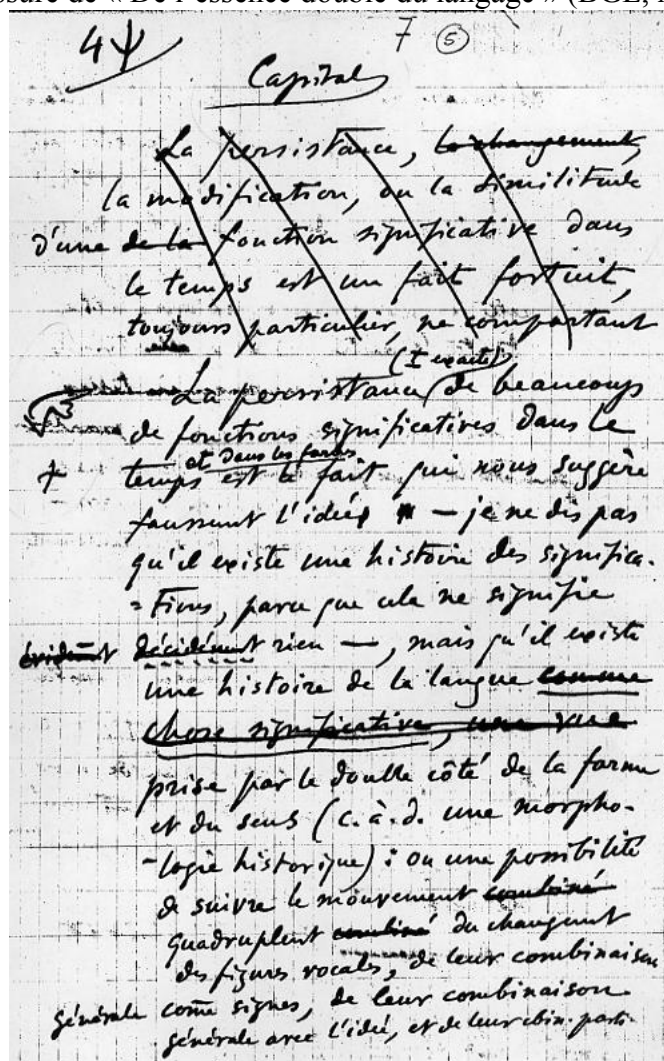 ssure de « De l'essence double du langage » (DGE,
4ψ
7 5
Capital
La persistance, le changement,
la modification, ou la similitude
d'une de la fonction significative dans
le temps est un fait fortuit,
toujours particulier, ne comportant
(± exacte)
La persistance de beaucoup
de fonctions significatives dans le
et dans les formes
+ temps est le fait qui nous suggère
faussemt l'idée — je ne dis pas
qu'il existe une histoire des significa-
= tions, parce que cela ne signifie
évidemt décidémt rien —, mais qu'il existe
une histoire de la langue comme
chose significative, une vue
prise par le double côté de la forme
et du sens (c.à.d. une morpho-
-logie historique) : ou une possibilité
de suivre le mouvement combiné
quadruplemt combiné du changemt
des figures vocales, de leur combinaison
générale com̄e signes, de leur combinaison
générale avec l'idée, et de leur cbin. parti-